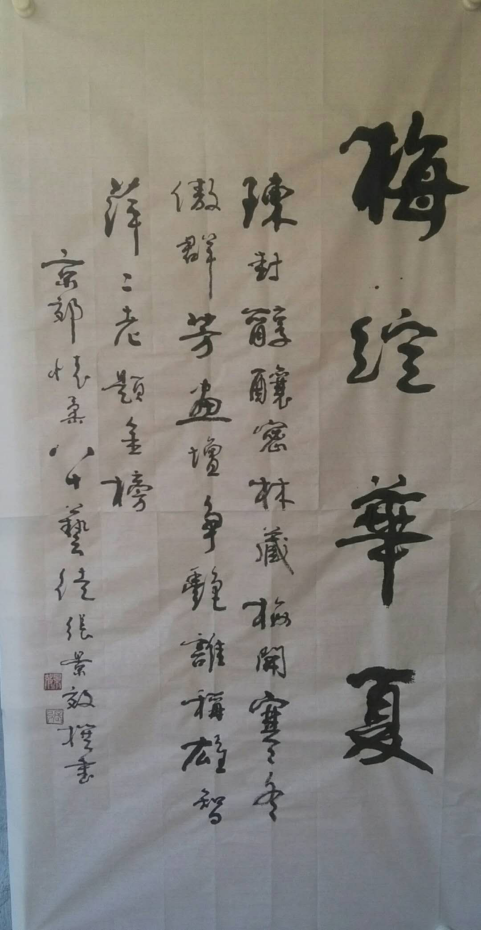 梅绽華夏
陳封醇釀密林藏梅開寒冬
傲群芳畫壇争艷誰稱雄智
萍二老題金榜
京郊懷柔八十藝徒張景效撰書